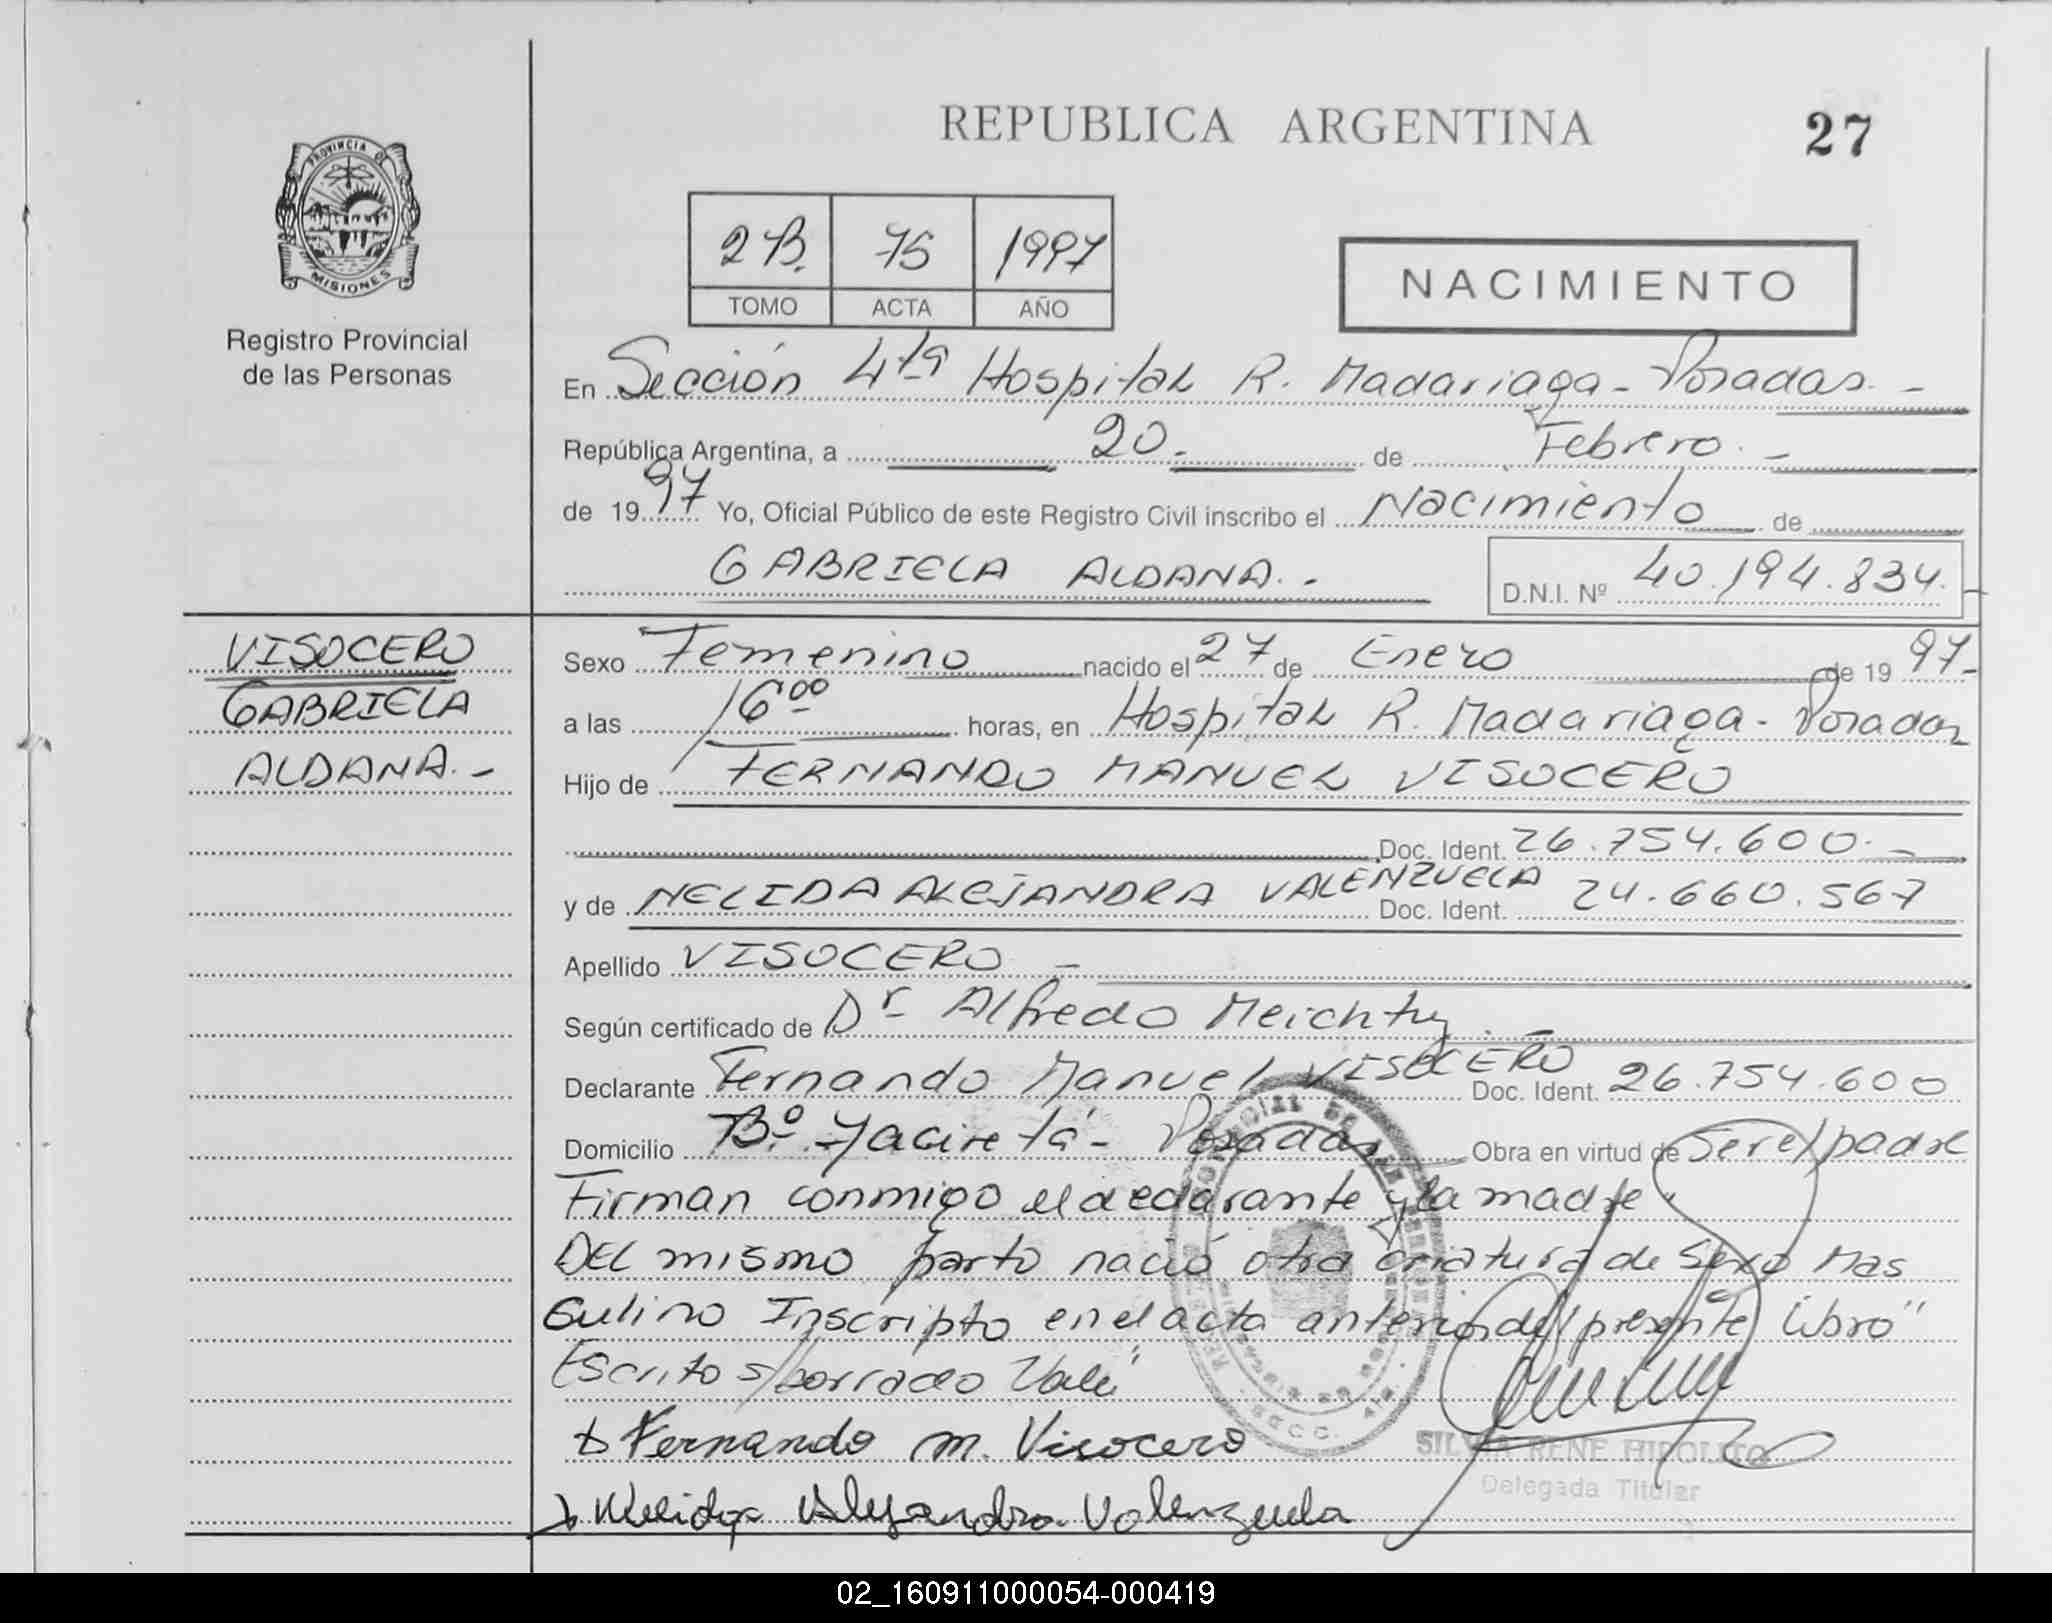 REPUBLICA ARGENTINA
27
PROVINCIA DE
MISIONES
Registro Provincial
de las Personas
2B. 75 1997
TOMO ACTA AÑO
NACIMIENTO
En Sección 4ta Hospital R. Madariaga - Posadas. -
República Argentina, a 20. de Febrero. -
de 1997 Yo, Oficial Público de este Registro Civil inscribo el Nacimiento de
GABRIELA ALDANA. -
D.N.I. Nº 40.194.834.
VISOCERO
GABRIELA
ALDANA. -
Sexo Femenino nacido el 27 de Enero de 1997-
a las 16 00 horas, en Hospital R. Madariaga - Posadas
Hijo de FERNANDO MANUEL VISOCERO
Doc. Ident. 26.754.600. -
y de NELIDA ALEJANDRA VALENZUELA Doc. Ident. 24.660.567
Apellido VISOCERO -
Según certificado de Dr Alfredo Meichtry
Declarante Fernando Manuel VISOCERO Doc. Ident. 26.754.600
Domicilio Bº Yacireta - Posadas Obra en virtud de Ser el padre
Firman conmigo el declarante y la madre
DEL mismo parto nació otra criatura de Sexo Mas
culino Inscripto en el acta anterior del presente libro"
Escrito s/borrado Vale
Fernando M. Visocero
Nelida Alejandra Valenzuela
SILVIA RENE HIPOLITO
Delegada Titular
02_160911000054-000419